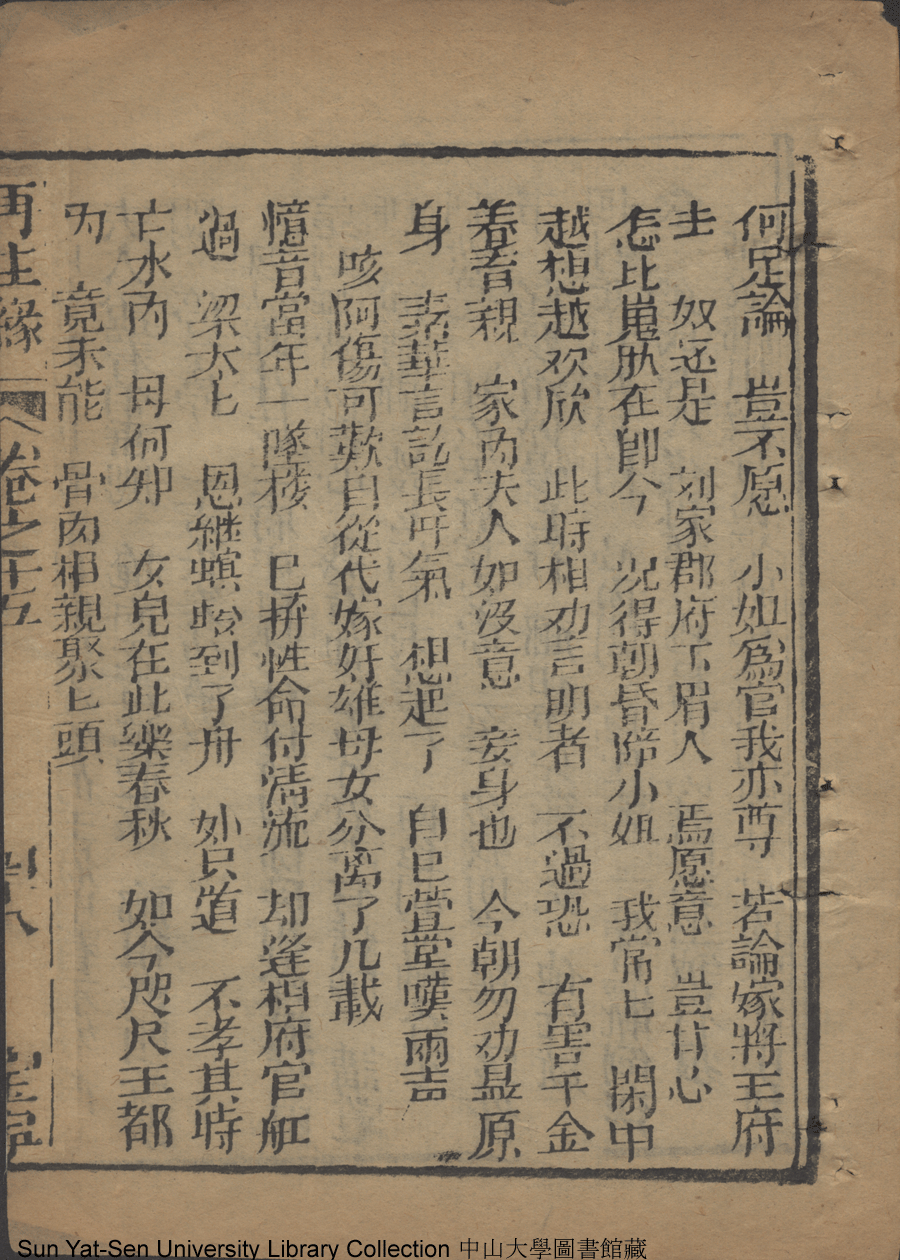 何足論　豈不愿　小姐爲官我亦尊　若論嫁將王府
去　奴还是　刘家郡府下眉人　焉愿意　豈甘心
怎比嵬肷在即今　况得朝昏陪小姐　我常匕　閑中
越想越欢欣　此時相劝言明者　不過恐　有害千金
養育親　家內夫人如没意　妾身也　今朝勿劝孟原
身　素華言訖長吁氣　想起了　自己萱堂嘆兩声
咳阿傷可歎自從代嫁奸雄母女分离了几載
憶昔當年一墜楼　已拚性命付清流　却逢相府官舡
過　梁太匕　恩継螟蛉到了舟　娘只道　不孝其時
亡水內　母何知　女兒在此樂春秋　如今咫尺王都
內　竟未能　骨肉相親聚匕頭
再生緣　卷之十五　四八　宝寧
Sun Yat-Sen University Library Collection 中山大學圖書館藏